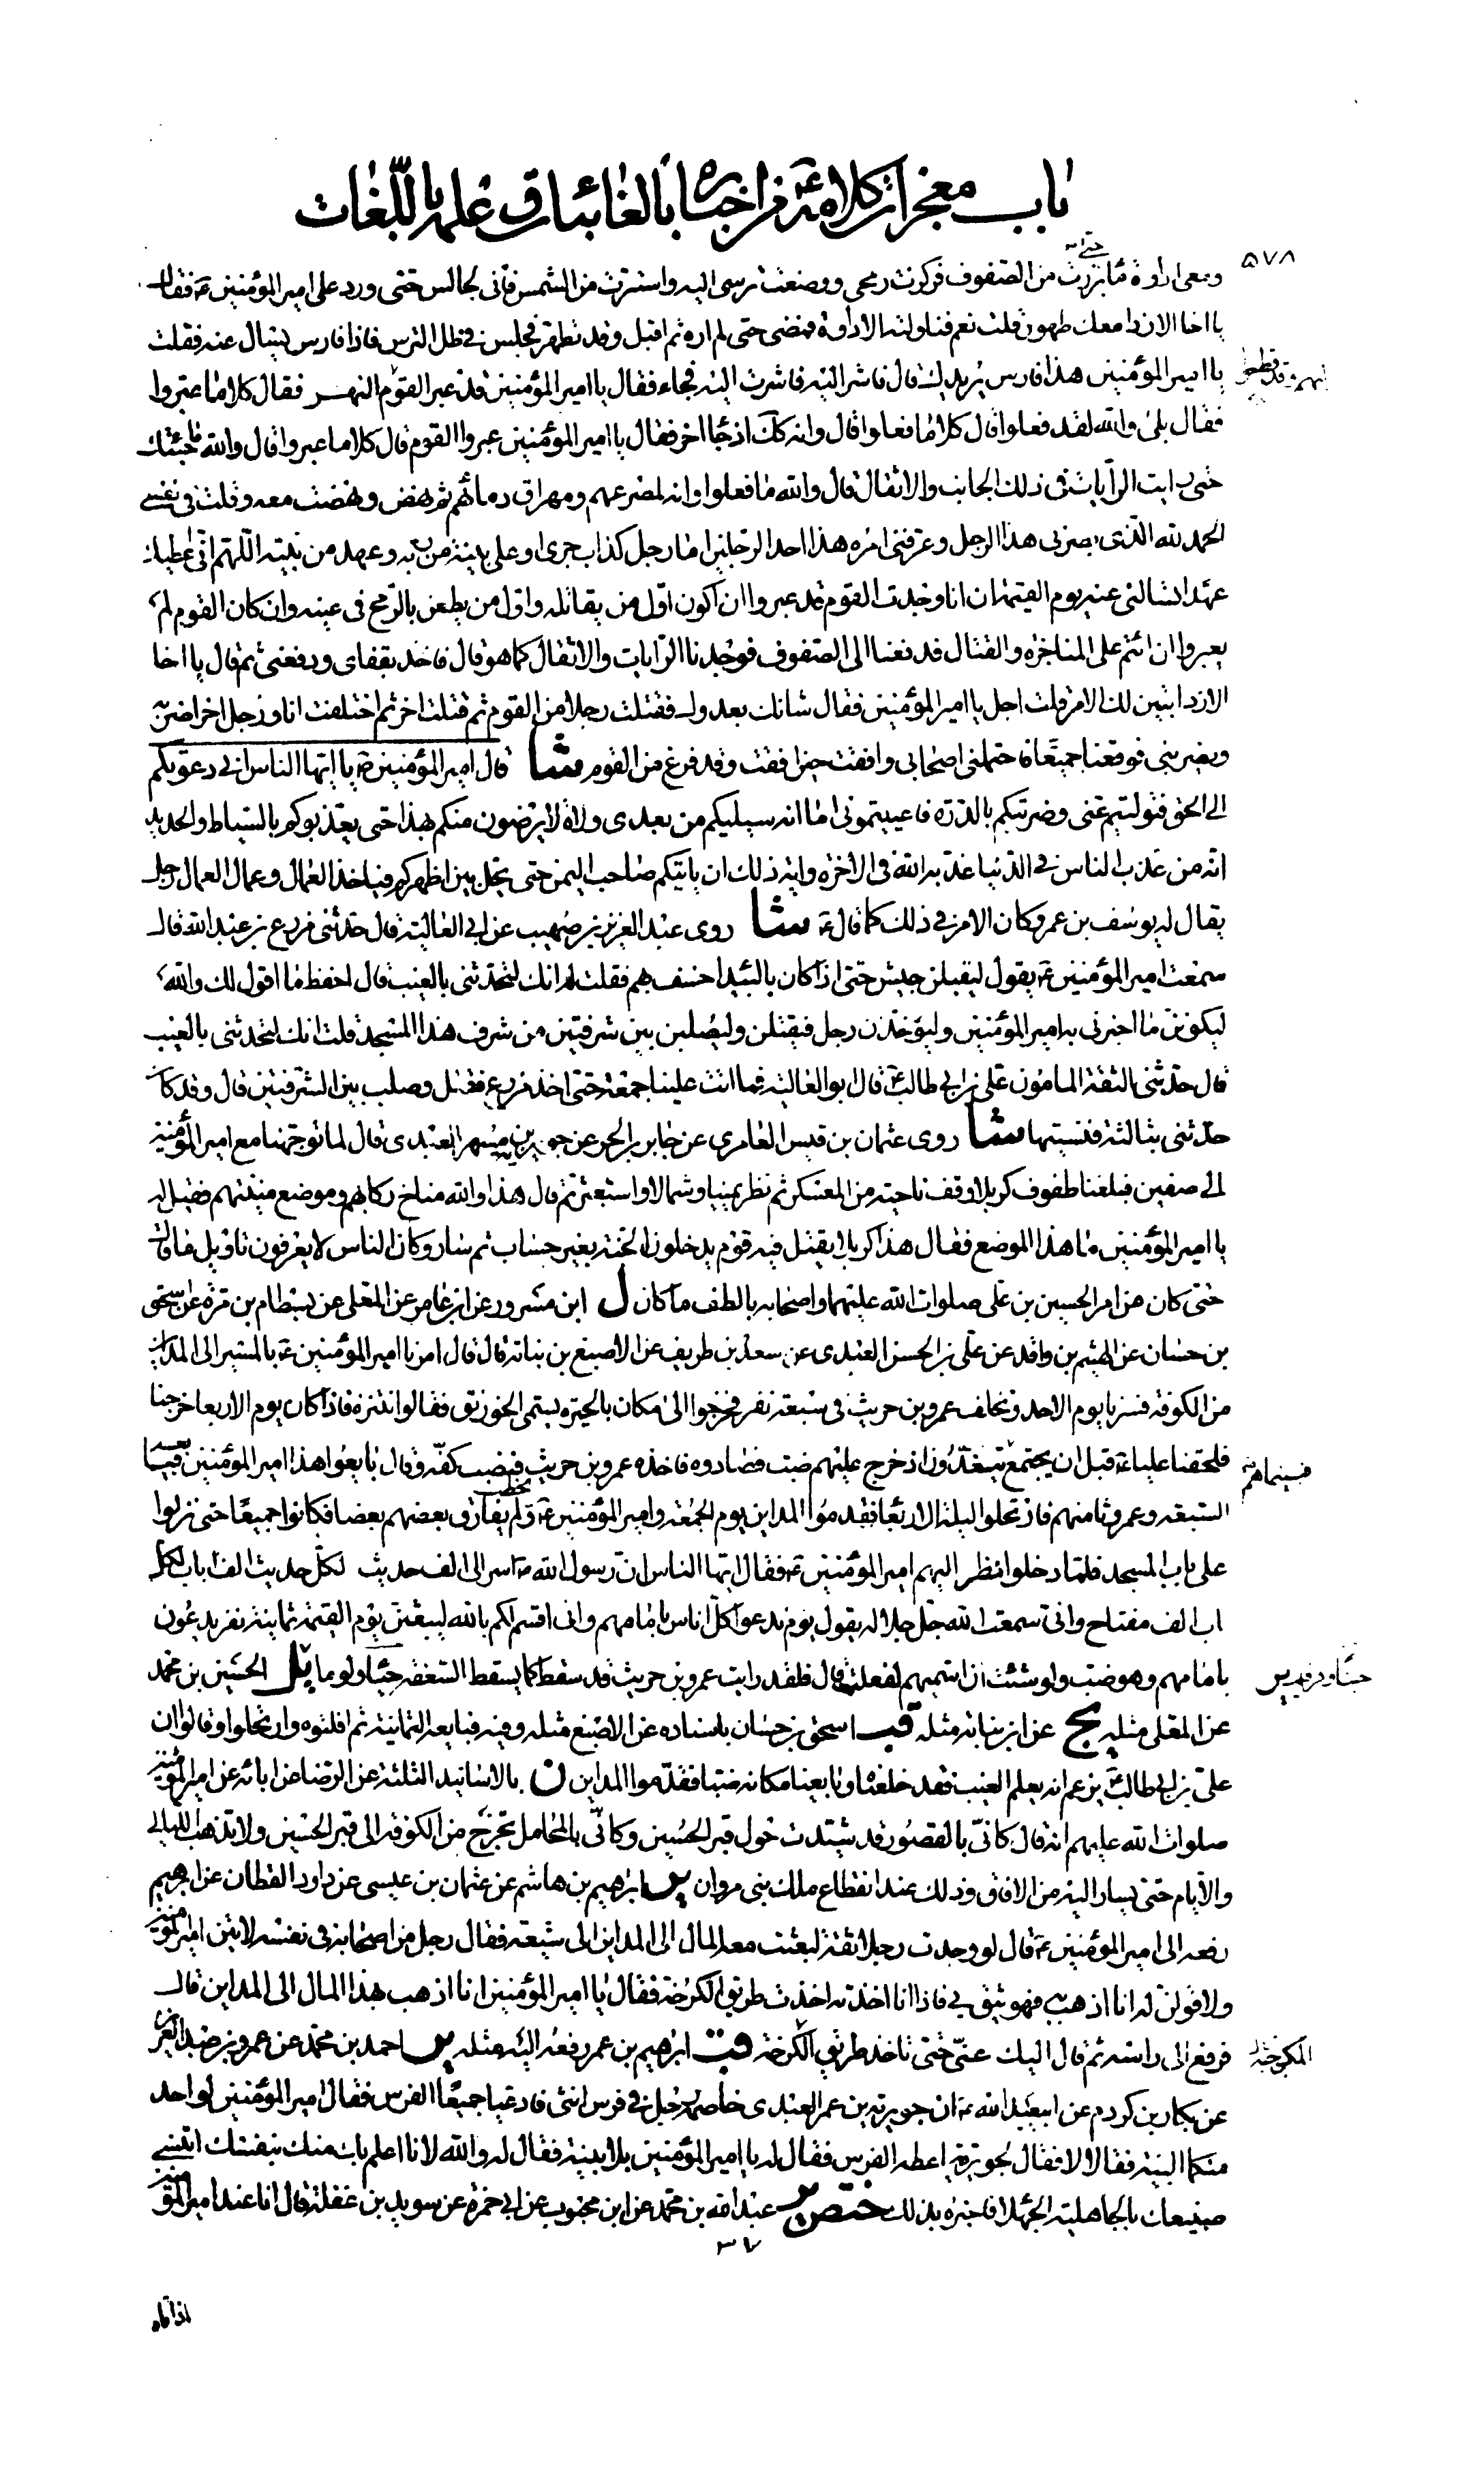 باب معجزات كلامه ع من اخباره بالغائبات و علمه باللغات
۵۷۸
حتى
ومعى اداوة ماء برزت من الصفوف فركزت رمحى ووضعت ترسى اليه واستترت من الشمس فانى لجالس حتى ورد على امير المؤمنين ع فقال
يا اخا الازد امعك طهور قلت نعم فناولته الاداوة فمضى حتى لم اره ثم اقبل وقد تطهر فجلس فى ظل الترس فاذا فارس يسال عنه فقلت
يا امير المؤمنين هذا فارس يريدك قال فاشر اليه فاشرت اليه فجاء فقال يا امير المؤمنين قد عبر القوم النهر فقال كلا ما عبروا
فقال بلى والله لقد فعلوا قال كلا ما فعلوا قال وانه كك اذ جاء اخر فقال يا امير المؤمنين عبروا القوم قال كلا ما عبروا قال والله ما جئتك
حتى رايت الرايات فى ذلك الجانب والاثقال قال والله ما فعلوا وانه لمصرعهم ومهراق دمائهم ثم نهض ونهضت معه وقلت فى نفسى
الحمد لله الذى بصرنى هذا الرجل وعرفنى امره هذا احد الرجلين اما رجل كذاب جرى او على بينة من ربه وعهد من نبيه اللهم انى اعطيك
عهدا تسالنى عنه يوم القيمة ان انا وجدت القوم قد عبروا ان اكون اول من يقاتله واول من يطعن بالرمح فى عينه وان كان القوم لم
يعبروا ان ائتم على المناجزة والقتال فدفعنا الى الصفوف فوجدنا الرايات والاثقال كما هو قال فاخذ بقفاى ودفعنى ثم قال يا اخا
الازد اتبين لك الامر قلت اجل يا امير المؤمنين فقال شانك بعدوك فقتلت رجلا من القوم ثم قتلت اخر ثم اختلفت انا ورجل اخر اضربه
ويضربنى فوقعنا جميعا فاحتملنى اصحابى وافقت حين افقت وقد فرغ من القوم شا قال امير المؤمنين ع يا ايها الناس انى دعوتكم
الى الحق فتوليتم عنى وضربتكم بالدرة فاعييتمونى اما انه سيليكم من بعدى ولاة لا يرضون منكم بهذا حتى يعذبوكم بالسياط والحديد
انه من عذب الناس فى الدنيا عذبه الله فى الاخرة واية ذلك ان ياتيكم صاحب اليمن حتى يحل بين اظهركم فياخذ العمال وعمال العمال رجل
يقال له يوسف بن عمرو كان الامر فى ذلك كما قال ع شا روى عبد العزيز بن صهيب عن ابى العالية قال حدثنى مزرع بن عبد الله قال
سمعت امير المؤمنين ع يقول ليقبلن جيش حتى اذا كان بالبيداء خسف بهم فقلت له انك لتحدثنى بالغيب قال احفظ ما اقول لك والله
ليكونن ما اخبرنى به امير المؤمنين وليؤخذن رجل فيقتلن وليصلبن بين شرفتين من شرف هذا المسجد قلت انك لتحدثنى بالغيب
قال حدثنى الثقة المامون على بن ابى طالب ع قال ابو العالية فما اتت علينا جمعة حتى اخذ مزرع فقتل وصلب بين الشرفتين قال وقد كان
حدثنى بثالثة فنسيتها شا روى عثمان بن قيس العامرى عن جابر بن الحر عن جويرية بن مسهر العبدى قال لما توجهنا مع امير المؤمنين
الى صفين فبلغنا طفوف كربلا وقف ناحية من المعسكر ثم نظر يمينا وشمالا واستعبر ثم قال هذا والله مناخ ركابهم وموضع منيتهم فقيل له
يا امير المؤمنين ما هذا الموضع فقال هذا كربلا يقتل فيه قوم يدخلون الجنة بغير حساب ثم سار وكان الناس لا يعرفون تاويل ما قال
حتى كان من امر الحسين بن على صلوات الله عليهما واصحابه بالطف ما كان ل ابن مسرور عن ابن عامر عن المعلى عن بسطام بن مرة عن اسحق
بن حسان عن الهيثم بن واقد عن على بن الحسن العبدى عن سعد بن طريف عن الاصبغ بن نباتة قال قال امرنا امير المؤمنين ع بالمسير الى المداين
من الكوفة فسرنا يوم الاحد وتخلف عمرو بن حريث فى سبعة نفر فخرجوا الى مكان بالحيرة يسمى الخورنق فقالوا نتنزه فاذا كان يوم الاربعا خرجنا
فلحقنا عليا ع قبل ان يجتمع يتغدون اذ خرج عليهم ضب فصادوه فاخذه عمرو بن حريث فنصب كفه وقال بايعوا هذا امير المؤمنين فبايعه
فبينما هم
السبعة وعمرو ثامنهم فارتحلوا ليلة الاربعا فقدموا المداين يوم الجمعة وامير المؤمنين ع يخطب ولم يفارق بعضهم بعضا فكانوا جميعا حتى نزلوا
على باب المسجد فلما دخلوا نظر اليهم امير المؤمنين ع فقال ايها الناس ان رسول الله ص اسر الى الف حديث لكل حديث الف باب لكل
باب الف مفتاح وانى سمعت الله جل جلاله يقول يوم ندعو كل اناس بامامهم وانى اقسم لكم بالله ليبعثن يوم القيمة ثمانية نفر يدعون
بامامهم وهو ضب ولو شئت ان اسميهم لفعلت قال فلقد رايت عمرو بن حريث قد سقط كما يسقط السعفة حياء ولوما ير الحسين بن محمد
عن المعلى مثله يج عن ابن نباتة مثله قب اسحق بن حسان باسناده عن الاصبغ مثله وفيه فبايعه الثمانية ثم افلتوه وارتحلوا وقالوا ان
على بن ابى طالب ع يزعم انه يعلم الغيب فقد خلعناه وبايعنا مكانه ضبا فقدموا المداين ن بالاسانيد الثلثة عن الرضا عن ابائه عن امير المؤمنين
صلوات الله عليهم انه قال كانى بالقصور قد شيدت حول قبر الحسين وكانى بالمحامل تخرج من الكوفة الى قبر الحسين ولا تذهب الليالى
والايام حتى يسار اليه من الافاق وذلك عند انقطاع ملك بنى مروان ير ابرهيم بن هاشم عن عثمان بن عيسى عن داود القطان عن ابرهيم
رفعه الى امير المؤمنين ع قال لو وجدت رجلا ثقة لبعثت معه المال الى المداين الى شيعة فقال رجل من اصحابه فى نفسه لاتين امير المؤمنين
ولاقولن له انا اذهب به فهو يثق بى فاذا انا اخذته اخذت طريق الكرخة فقال يا امير المؤمنين انا اذهب بهذا المال الى المداين قال
فرفع الى راسه ثم قال اليك عنى حتى تاخذ طريق الكرخة قب ابرهيم بن عمر رفعه اليه مثله ير احمد بن محمد عن عمرو بن عبد العزيز
عن بكار بن كردم عن ابيعبد الله ع ان جويرية بن عمر العبدى خاصمه رجل فى فرس انثى فادعيا جميعا الفرس فقال امير المؤمنين لواحد
منكما البينة فقالا لا فقال لجويرية اعطه الفرس فقال له يا امير المؤمنين بلا بينة فقال له والله لانا اعلم بك منك بنفسك اتنسى
صنيعك بالجاهلية الجهلاء فاخبره بذلك ختص ير عبد الله بن محمد عن ابن محبوب عن ابى حمزة عن سويد بن غفلة قال انا عند امير المؤمنين
۳۷
اذا تاه